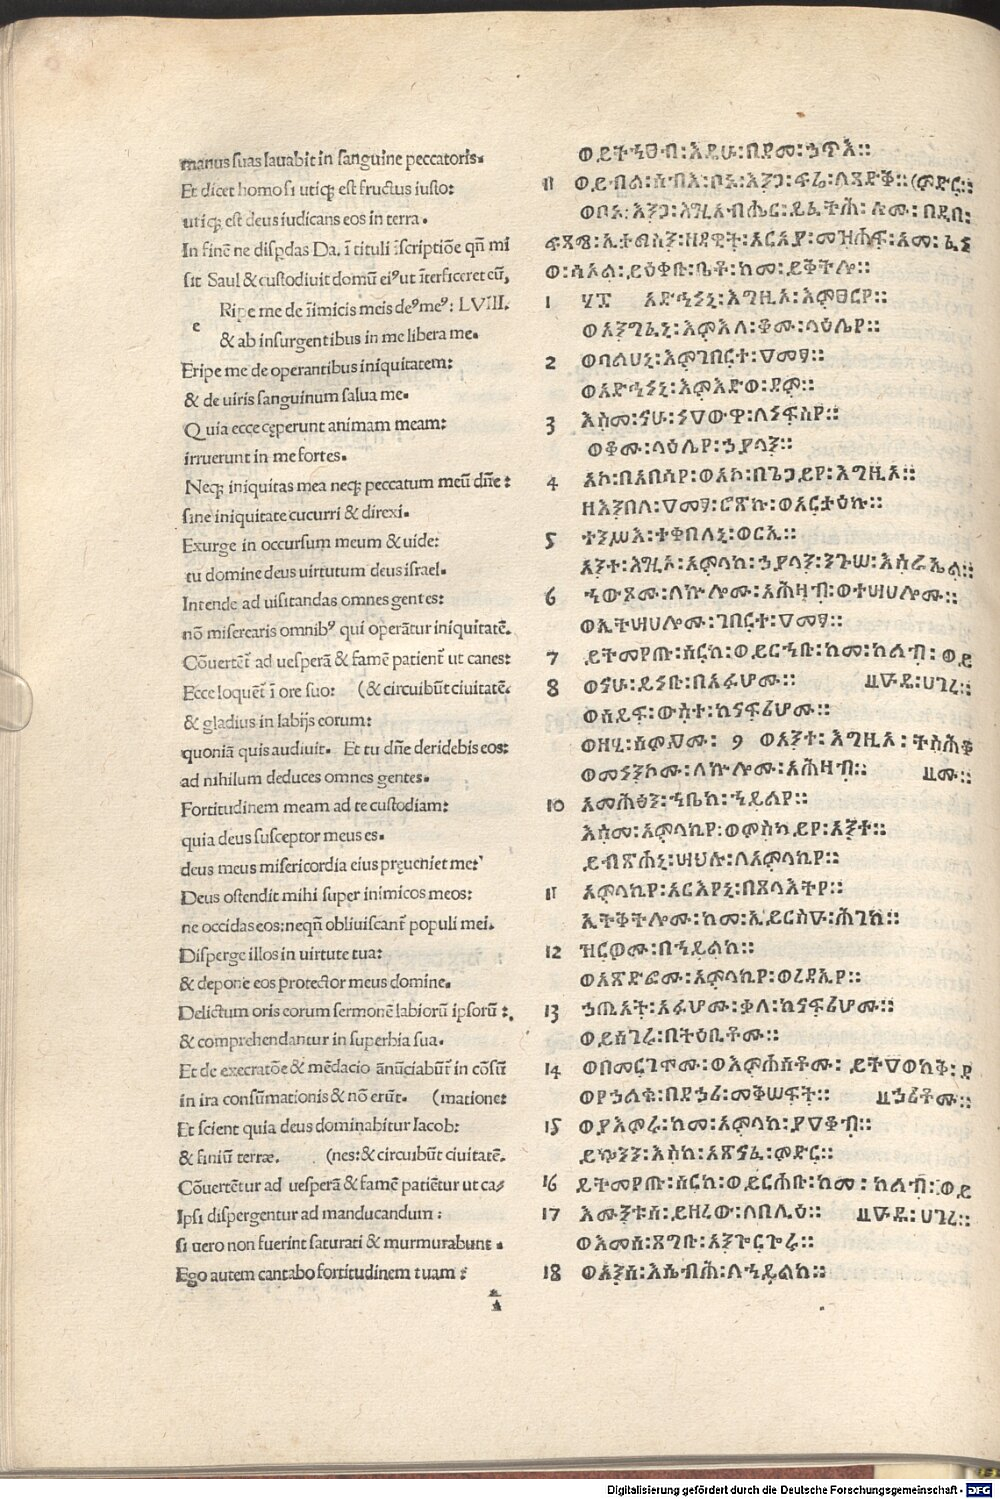 manus suas lauabit in sanguine peccatoris.
Et dicet homo si utiqꝫ est fructus iusto:
utiqꝫ est deus iudicans eos in terra.
In finē ne disp̱das Da. ī tituli īscriptiōe qñ mi
sit Saul & custodiuit domū eiꝰ ut īterficeret eū,
Ripe me de īimicis meis deꝰ meꝰ: LVIII.
e
& ab insurgentibus in me libera me.
Eripe me de operantibus iniquitatem:
& de uiris sanguinum salua me.
Quia ecce cęperunt animam meam:
irruerunt in me fortes.
Neqꝫ iniquitas mea neqꝫ peccatum meū dñe:
sine iniquitate cucurri & direxi.
Exurge in occursum meum & uide:
tu domine deus uirtutum deus israel.
Intende ad uisitandas omnes gentes:
nō miserearis omnibꝰ qui operātur iniquitatē.
Cōuertēt̄ ad uesperā & famē patient̄ ut canes:
Ecce loquēt̄ ī ore suo: (& circuibūt ciuitatē.
& gladius in labijs eorum:
quoniā quis audiuit. Et tu dñe deridebis eos:
ad nihilum deduces omnes gentes.
Fortitudinem meam ad te custodiam:
quia deus susceptor meus es.
deus meus misericordia eius pręueniet me:
Deus ostendit mihi super inimicos meos:
ne occidas eos: neqñ obliuiscant̄ populi mei.
Disperge illos in uirtute tua:
& depone eos protector meus domine.
Delictum oris eorum sermonē labiorū ipsorū:
& comprehendantur in superbia sua.
Et de execratōe & mēdacio ānūciabūt̄ in cōsū
in ira consūmationis & nō erūt. (matione:
Et scient quia deus dominabitur Iacob:
& finiū terræ. (nes: & circuibūt ciuitatē.
Cōuertētur ad uesperā & famē patiētur ut ca-
Ipsi dispergentur ad manducandum:
si uero non fuerint saturati & murmurabunt.
Ego autem cantabo fortitudinem tuam:
ወይትኀፀብ፡እዴሁ፡በደመ፡ኃጥእ።
11 ወይብል፡ሰብእ፡ቦኑ፡እንጋ፡ፍሬ፡ለጻድቅ። (ምድር።
ወቦኑ፡እንጋ፡እግዚአብሔር፡ይፌትሕ፡ሎሙ፡በዲበ፡
ፍጻሜ፡ዘዳዊት፡አርአያ፡መዝሐፍ፡አመ፡ፈነ
ወ፡ሳኦል፡ይዕቀቡ፡ቤቶ፡ከመ፡ይቅትሎ።
1 ፶፰ አድኅነኒ፡እግዚኦ፡እምፀርየ።
ወአንግፈኒ፡እምእለ፡ቆሙ፡ላዕሌየ።
2 ወባልሀኒ፡እምገበርተ፡ዐመፃ።
ወአድኅነኒ፡እምእደወ፡ደም።
3 እስመ፡ናሁ፡ናዐውዋ፡ለነፍስየ።
ወቆሙ፡ላዕሌየ፡ኃያላን።
4 አኮ፡በአበሳየ፡ወአኮ፡በጌጋይየ፡እግዚኦ።
ዘእንበለ፡ዐመፃ፡ሮጽኩ፡ወአርታዕኩ።
5 ተንሥእ፡ተቀበለኒ፡ወርኢ።
አንተ፡እግዚኦ፡አምላከ፡ኃያላን፡ንጉሠ፡እስራኤል።
6 ኀውጾሙ፡ለኵሎሙ፡አሕዛብ፡ወተሣሀሎሙ።
ወኢትሣሀሎሙ፡ገበርተ፡ዐመፃ።
7 ይትመየጡ፡ሰርከ፡ወይርኀቡ፡ከመ፡ከልብ፡ወይ
8 ወናሁ፡ይነቡ፡በአፉሆሙ። ዐውዱ፡ሀገረ።
ወሰይፍ፡ውስተ፡ከናፍሪሆሙ።
ወዘኒ፡ሰምዖሙ፡ 9 ወአንተ፡እግዚኦ፡ትስሕቅ
ወመነንኮሙ፡ለኵሎሙ፡አሕዛብ። ዖሙ።
10 አመሕፅን፡ኀቤከ፡ኀይልየ።
እስመ፡አምላኪየ፡ወምስካይየ፡አንተ።
ይብጽሐኒ፡ሣህሉ፡ለአምላኪየ።
11 አምላኪየ፡አርእየኒ፡በጸላእትየ።
ኢትቅትሎሙ፡ከመ፡ኢይርስዑ፡ሕገከ።
12 ዝርዎሙ፡በኀይልከ።
ወአጽድፎሙ፡አምላኪየ፡ወረዳእየ።
13 ኃጢአት፡አፉሆሙ፡ቃለ፡ከናፍሪሆሙ።
ወይሰገሩ፡በትዕቢቶሙ።
14 ወበመርገሞሙ፡ወእምሐሰቶሙ፡ይትዐወቅ፡ደ
ወየኃልቁ፡በደኃሪ፡መቅሠፍት። ዐኃሪቶሙ።
15 ወያእምሩ፡ከመ፡አምላክ፡ያዕቆብ።
ይኴንን፡እስከ፡አጽናፈ፡ምድር።
16 ይትመየጡ፡ሰርከ፡ወይርሕቡ፡ከመ፡ከልብ፡ወይ
17 እሙንቱሰ፡ይዘረው፡ለበሊዕ። ዐውዱ፡ሀገረ።
ወእመሰ፡ጸግቡ፡አንጐርጐሩ።
18 ወአንሰ፡እሴብሕ፡ለኀይልከ።